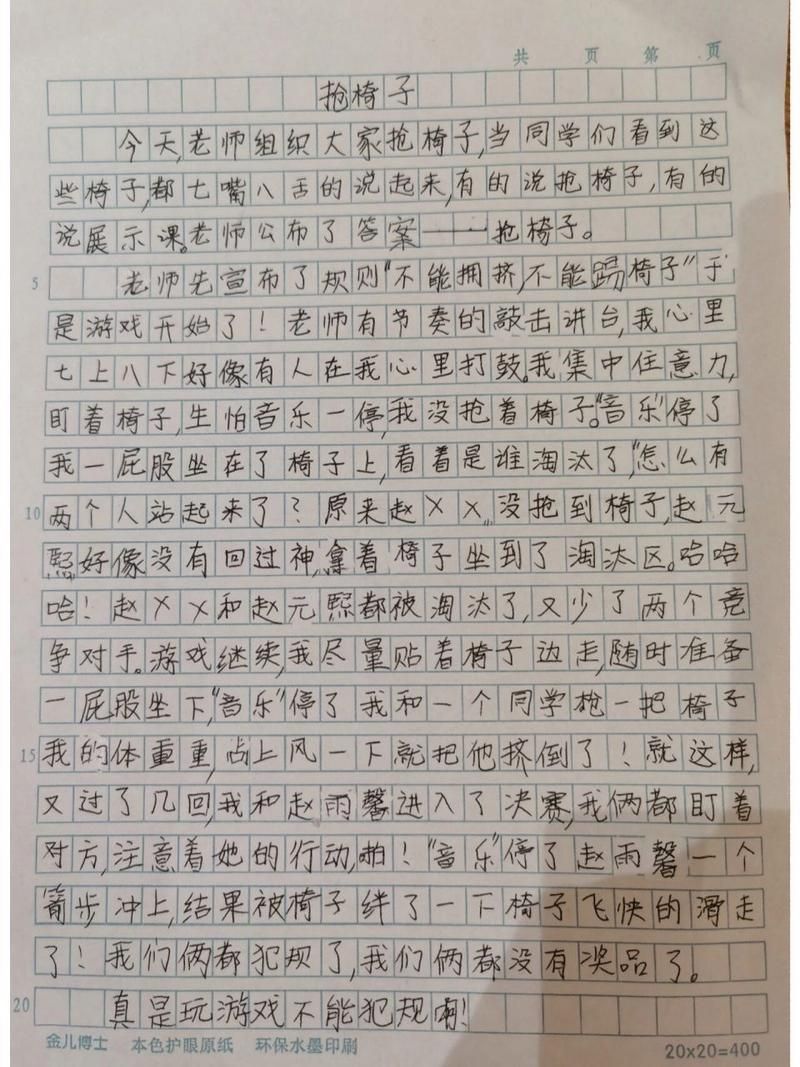 共 页 第 页
抢椅子
今天,老师组织大家抢椅子,当同学们看到这
些椅子,都七嘴八舌的说起来,有的说抢椅子,有的
说展示课。老师公布了答案——抢椅子。
5 老师先宣布了规则"不能拥挤,不能踢椅子"于
是游戏开始了！老师有节奏的敲击讲台,我心里
七上八下好像有人在我心里打鼓。我集中住意力,
盯着椅子,生怕音乐一停,我没抢着椅子。"音乐"停了
我一屁股坐在了椅子上,看着是谁淘汰了,"怎么有
10 两个人站起来了？原来赵XX,没抢到椅子,赵元
熙好像没有回过神,拿着椅子坐到了淘汰区。哈哈
哈！赵XX和赵元熙都被淘汰了,又少了两个竞
争对手。游戏继续,我尽量贴着椅子边走,随时准备
一屁股坐下,"音乐"停了我和一个同学枪一把椅子
15 我的体重重,占上风一下就把他挤倒了！就这样,
又过了几回,我和赵雨馨进入了决赛,我俩都盯着
对方,注意着她的行动,啪！"音乐"停了赵雨馨一个
箭步冲上,结果被椅子绊了一下椅子飞快的滑走
了！我们俩都犯规了,我们俩都没有奖品了。
20 真是玩游戏不能犯规啊!
金儿博士 本色护眼原纸 环保水墨印刷 20x20=400